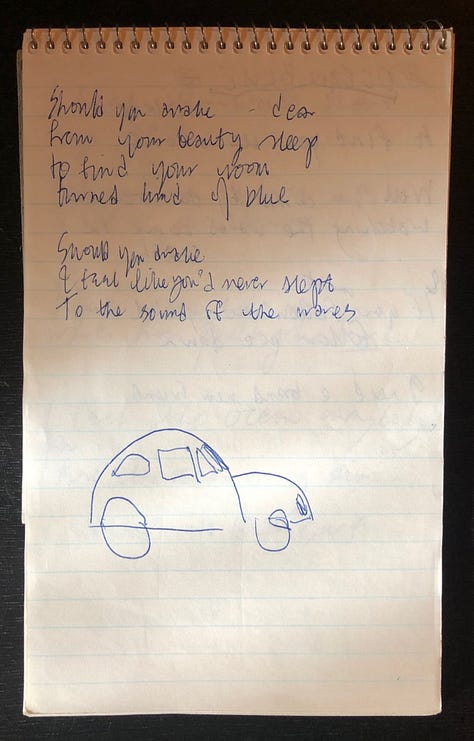 Should you awake - dear
From your beauty sleep
to find your room
turned kind of blue
Should you awake
& feel like you'd never slept
To the sound of the waves